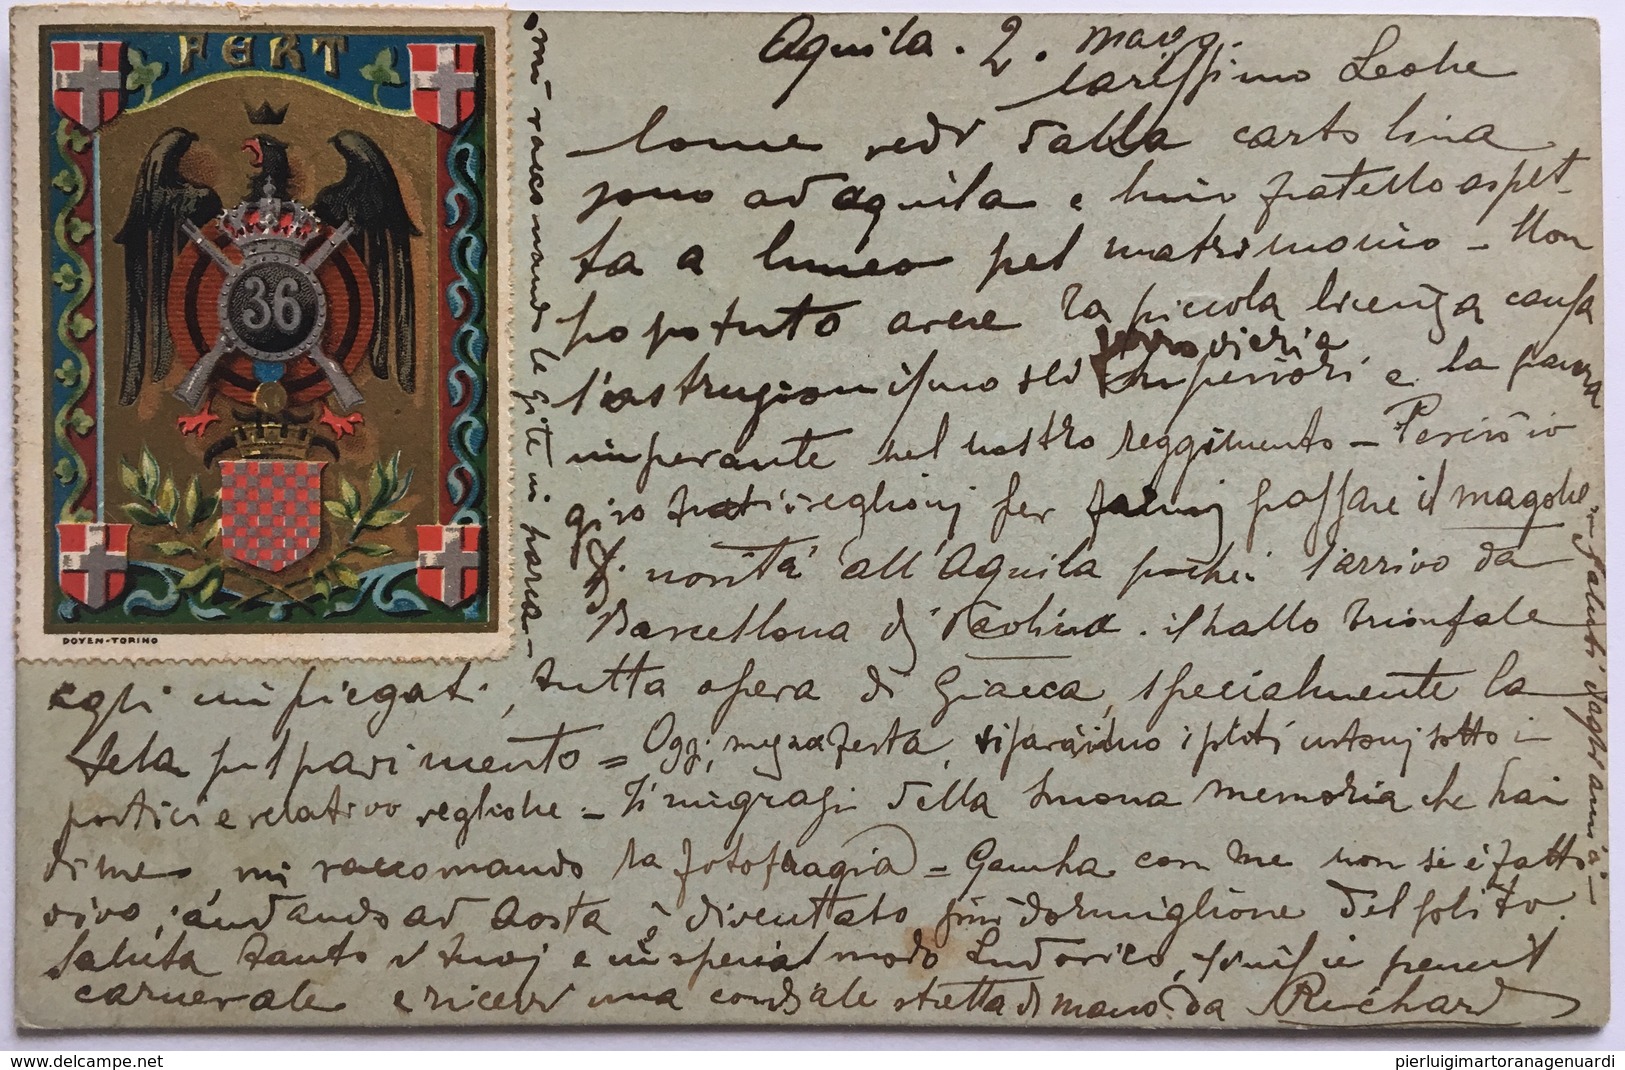 FERT
36
DOYEN-TORINO
Aquila. 2. marzo.
Carissimo Leone
Come vedi dalla cartolina
sono ad Aquila e mio fratello aspet-
ta a Cuneo pel matrimonio - Non
ho potuto avere la piccola licenza causa
ferroviaria
l'ostruzionismo dei superiori e la paura
imperante nel nostro reggimento - Perciò io
giro per far passare il magone
Di novità all'Aquila l'arrivo da
Barcellona di il ballo trionfale
egli impiegati, tutta opera di Giacca, specialmente la
tela pel pavimento = Oggi, mezza festa, sotto i
portici e relativo veglione - Ti ringrazi della buona memoria che hai
di me, mi raccomando la fotografia = Gamba con me non si è fatto
vivo, andando ad Aosta è diventato più dormiglione del solito.
Saluta tanto i tuoi e in special modo Ludovico, finisci e
carnevale e ricevi una cordiale stretta di mano da Richard
mi raccomando le gite in barca -
saluti dagli amici -
Delcampe.net
pierluigimartoranagenuardi